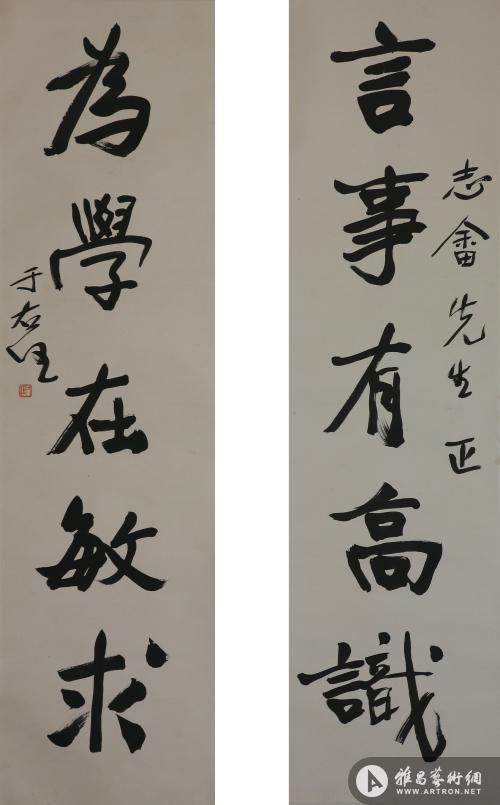 志畬先生正
言事有高識
為學在敏求
于右任
雅昌藝術網
WWW.ARTRON.NET